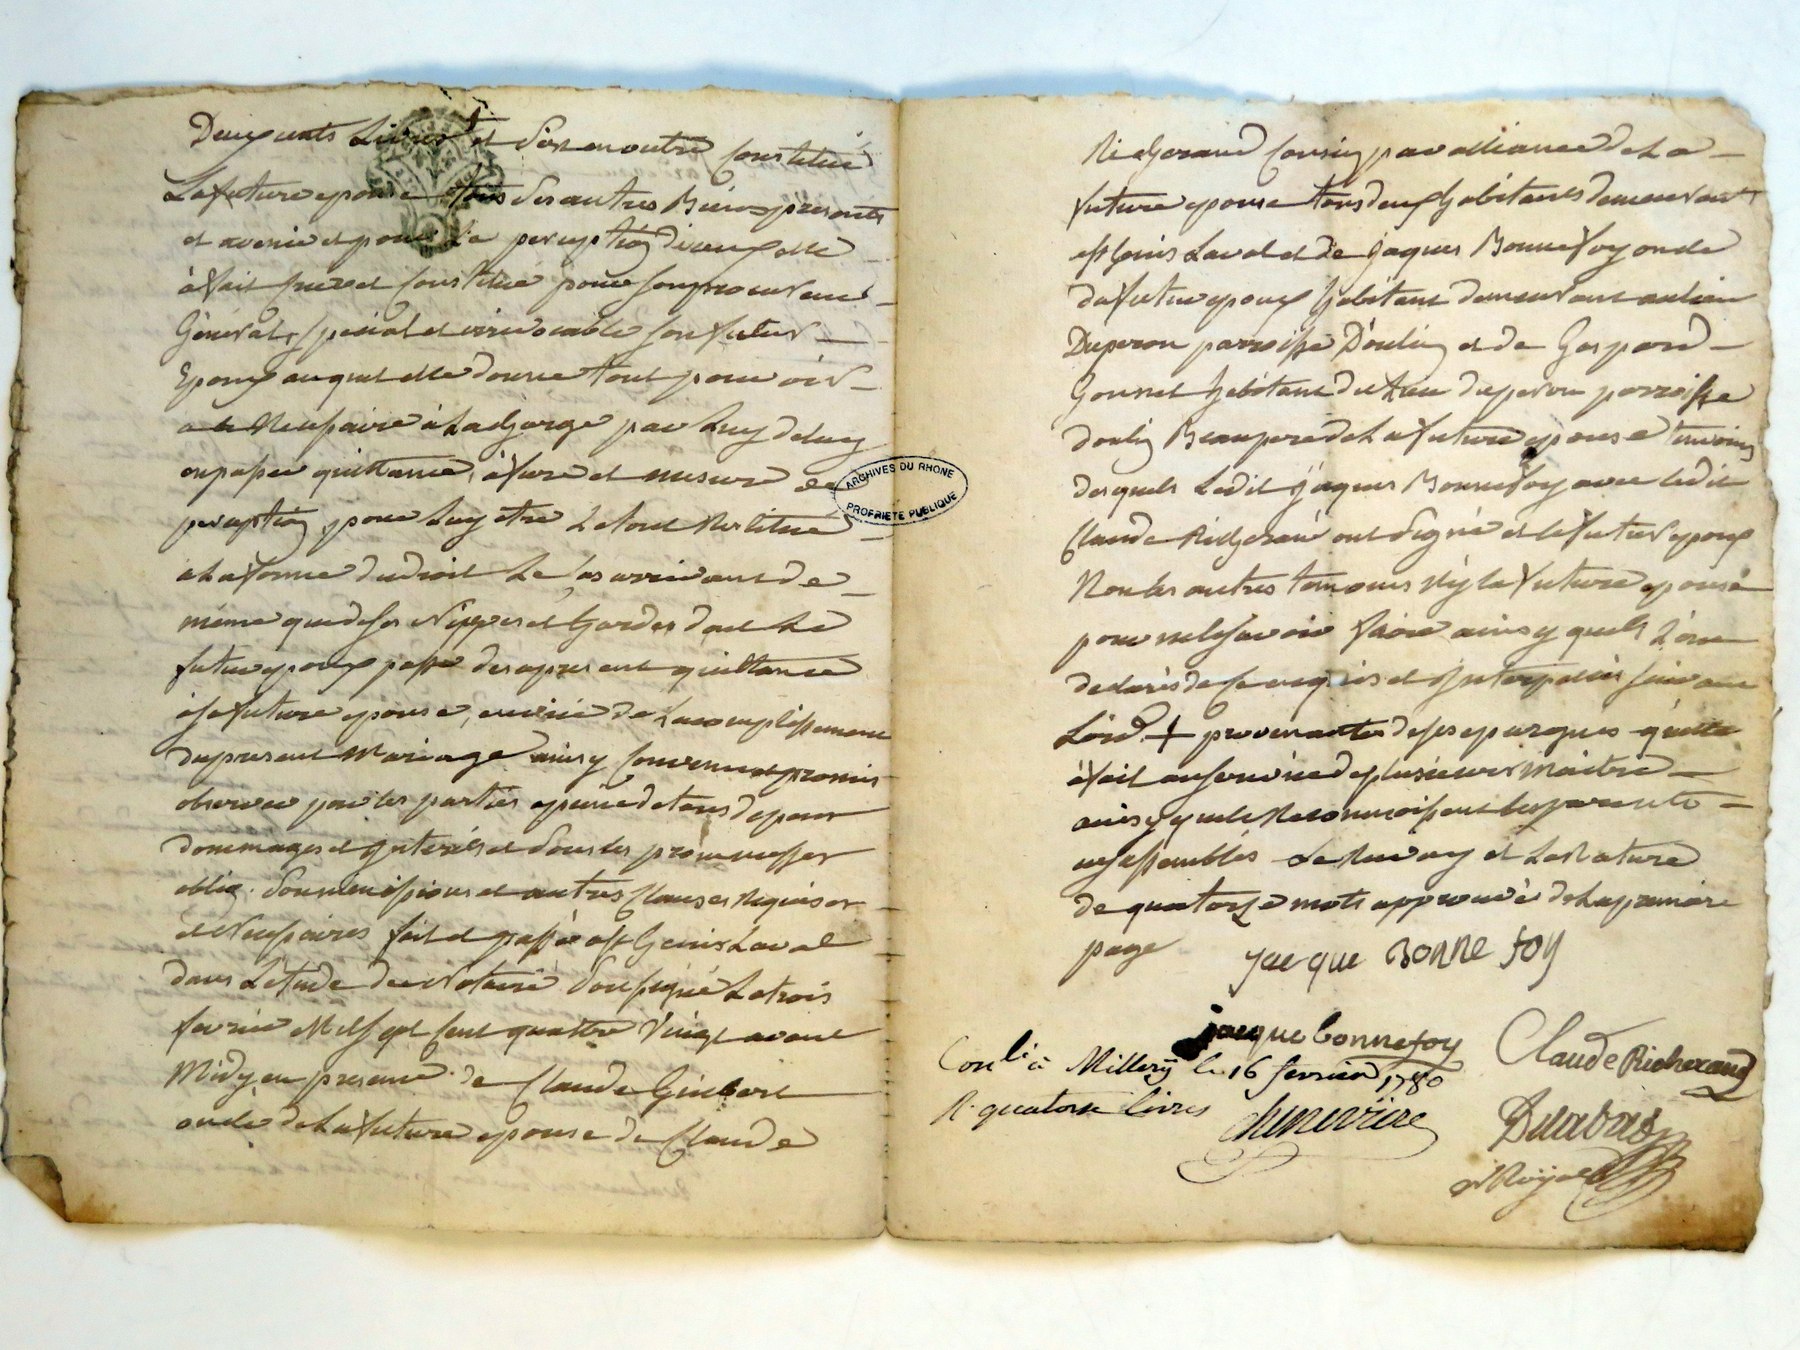 Deux cents Livres + et s'est en outre constitué
La future epouse tous ses autres Biens presents
et avenir et pour la perception d'iceux elle
à fait creé et constitué pour son procureur
Général, spécial et irrevocable son futur
Epoux auquel elle donne tout pouvoir
Necessaire à la charge par luy de luy
en passer quittance, à fure et mesure de
perception, pour luy etre le tout Restitué
a la forme du droit le cas arrivant de
même que de ses Nippes et hardes dont le
futur epoux passe des apresent quittance
à sa future epouse, au moien de l'accomplissement
du present Mariage ainsy convenu et promis
observer par les parties apeine de tous depens
dommages et interêts et sous les promesses
oblig. soumissions et autres clauses Requises
et Necessaires fait et passé a St Genis Laval
dans L'etude du Notaire soussigné Le trois
fevrier Mil sept cent quattre vingt avant
Midy en presence de Claude Guibert
oncle de la future epouse de Claude
ARCHIVES DU RHONE
PROPRIETE PUBLIQUE
Richerand cousin par alliance de La
future epouse tous deux habitants demeurant
a St Genis Laval et de Jaques Bonnefoy oncle
du futur epoux habitant demeurant au lieu
Duperon parroisse D'oulin et de Gaspard
Gonnet habitant du Lieu duperon parroisse
doulin Beaupere de la future epouse temoins
desquels Ledit Jaques Bonnefoy avec ledit
Claude Richerand ont signé et le futur epoux
Non les autres temoins Ny la future epouse
pour ne le savoir faire ainsy quils L'ont
declarés de ce enquis et interpellés suivant
L'ord. + provenantes de ses epargnes quelle
à fait au service de plusieurs maitre
ainsy que le Reconnoissent les parents
icy assemblés Le Renvoy et La Rature
de quatorze mots approuvés de La premiere
page
jacque BONNE foy
jacque bonnefoy
Claude Richerand
Conlé à Millery le 16 fevrier 1780
R. quatorse livres
chenevriere
Delabas
Nre Royal